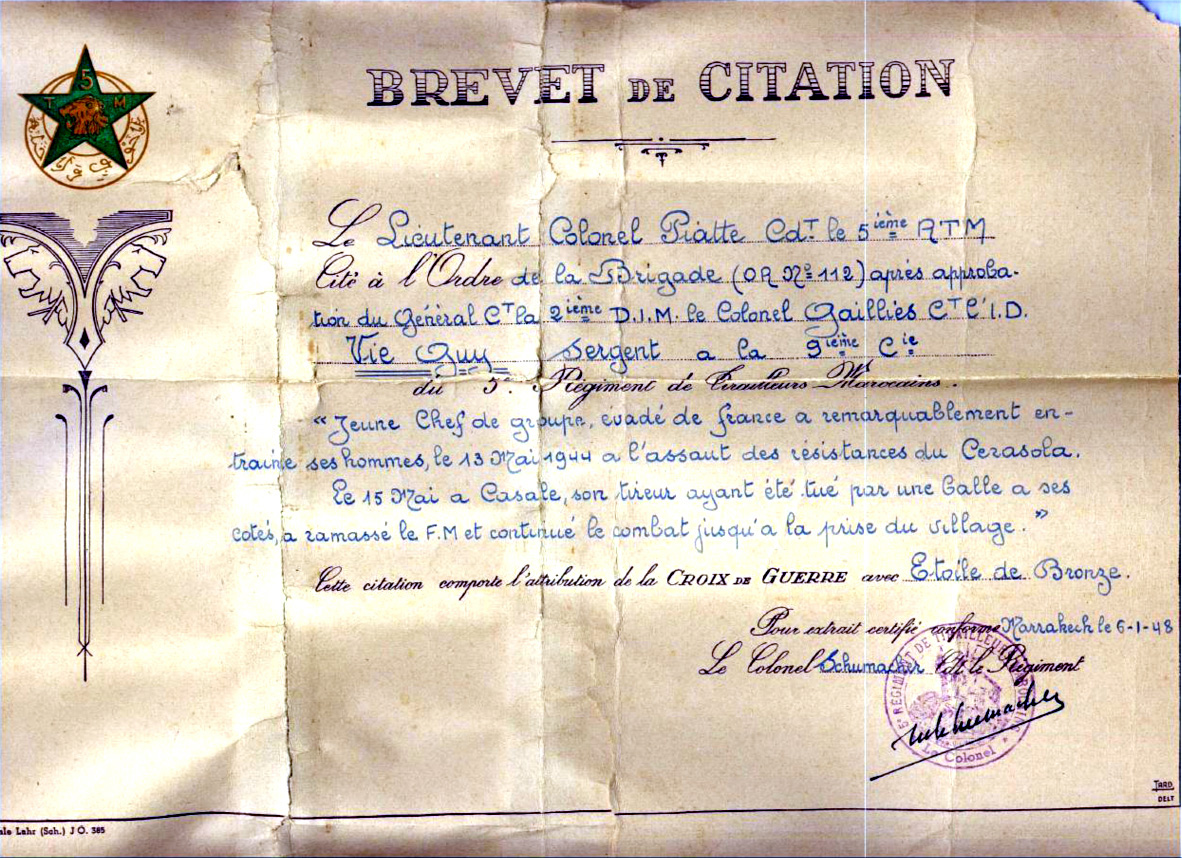 5
T M
BREVET DE CITATION
Le Lieutenant Colonel Piatte Cd.T le 5ième RTM
Cité à l'Ordre de la Brigade (O.R. No 112) après approba-
tion du Général CT la 2ième D.I.M. le Colonel Gailliès CT l'I.D.
Vie Guy Sergent a la 9ième Cie
du 5e Régiment de Tirailleurs Marocains.
"Jeune Chef de groupe, évadé de france a remarquablement en-
trainé ses hommes, le 13 Mai 1944 a l'assaut des résistances du Cerasola.
Le 15 Mai a Casale, son tireur ayant été tué par une balle a ses
cotés, a ramassé le F.M et continué le combat jusqu'a la prise du village."
Cette citation comporte l'attribution de la CROIX DE GUERRE avec Etoile de Bronze.
Pour extrait certifié conforme Marrakech le 6-1-48
Le Colonel Schumacher Cdt le Régiment
5e RÉGIMENT DE TIRAILLEURS MAROCAINS
Le Colonel
Schumacher
TARD
DELT
ale Lahr (Sch.) J O. 365